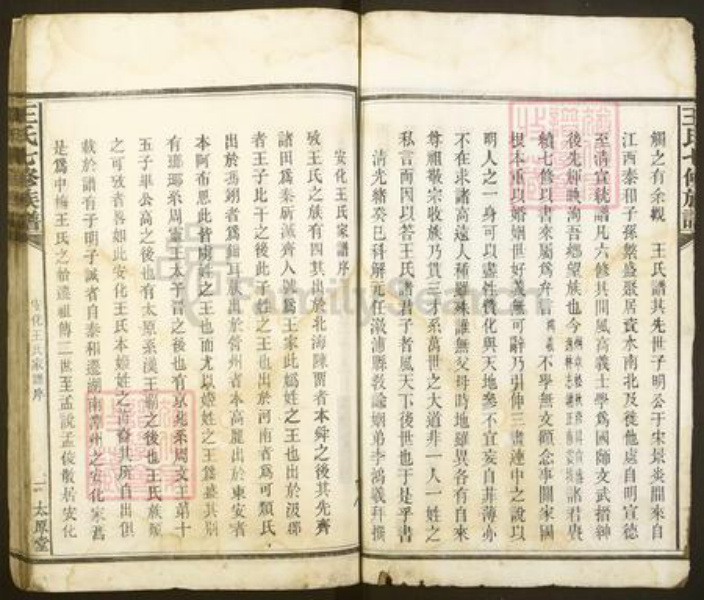 王氏七修族譜
觸之有餘觀　王氏譜其先世子明公于宋景炎間來自
江西泰和子孫繁盛聚居資水南北及徙他處自明宣德
至清宣統譜凡六修其間風高義士學爲國師文武搢紳
後先輝映洵吾鄉望族也今
諸君賡
續七修以書來屬爲弁言
不學無文顧念事關家國
根本重以婚姻世好義無可辭乃引伸三書連中之說以
明人之一身可以盡性贊化與天地參不宜妄自菲薄亦
不在求諸高遠人種雖殊誰無父母時地雖異各有自來
尊祖敬宗收族乃貫三才系萬世之大道非一人一姓之
私言而因以答王氏諸君子者風天下後世也于是乎書
清光緒癸巳科解元任漵浦縣敎諭姻弟李鴻羲拜撰
安化王氏家譜序
攷王氏之族有四其出於北海陳畱者本舜之後其先齊
諸田爲秦所滅齊人號爲王家此嬀姓之王也出於汲郡
者王子比干之後此子姓之王也出於河南者爲可頻氏
出於馮翊者爲鉗耳族出於營州者本高麗出於東安者
本阿布思此皆虜姓之王也而尤以姬姓之王爲盛其別
有瑯琊系周靈王太子晉之後也有京兆系周文王第十
五子畢公高之後也有太原系漢王霸之後也王氏族類
之可攷者畧如此安化王氏本姬姓之
其所自出俱
載於譜有子明子誠者自泰和遷湖南潭州之安化家焉
是爲中梅王氏之始遷祖傳二世至孟說孟俊散居安化
王氏七修族譜
安化王氏家譜序
一
太原堂
FamilySearch